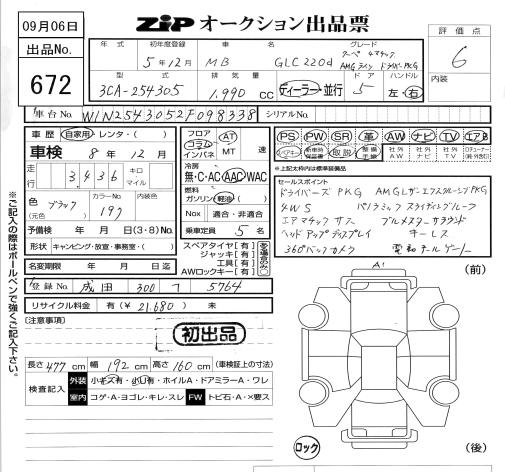 09月06日
ZIP オークション出品票
出品No.
672
評価点
6
内装
年式 初年度登録 車名 グレード
5年12月 MB GLC220d クーペ 4マチック
AMGライン ドライバーズPKG
型式 排気量 ドア ハンドル
3CA-254305 1,990 CC ディーラー・並行 5 左・右
車台No. W1N2543052F098338 シリアルNo.
車歴 自家用・レンタ・( )
車検 8年 12月
走行 3,436 キロ・マイル
色 ブラック (元色) カラーNo. 197 内装色
予備検 年 月 日(3・8)No.
形状 キャンピング・放宣・事務室・( )
名変期限 年 月 日迄
フロア コラム インパネ AT MT 速
冷房 無・C・AC・AAC・WAC
燃料 ガソリン・軽油・( )
Nox 適合・非適合
乗車定員 5名
スペアタイヤ[有]
ジャッキ[有]
工具[有]
AWロックキー[有]
PS PW SR 革 AW ナビ TV エアB
取説 社外AW 社外ナビ 社外TV
※上記太枠内は標準装備品
セールスポイント
ドライバーズPKG AMGレザーエクスクルーシブPKG
4WS パノラミックスライディングルーフ
エアマチックサス ブルメスターサラウンド
ヘッドアップディスプレイ キーレス
360°バックカメラ 電動テールゲート
登録No. 成田 300 フ 5764
リサイクル料金 有(¥21,680) 未
(注意事項)
初出品
長さ477cm 幅192cm 高さ160cm (車検証上の寸法)
検査記入 外装 小キズ有・小凹有・ホイルA・ドアミラーA・ワレ
室内 コゲ・A・ヨゴレ・キレ・スレ FW トビ石・A・×要ス
※ご記入の際はボールペンで強くご記入下さい。
A1
(前)
(後)
ロック